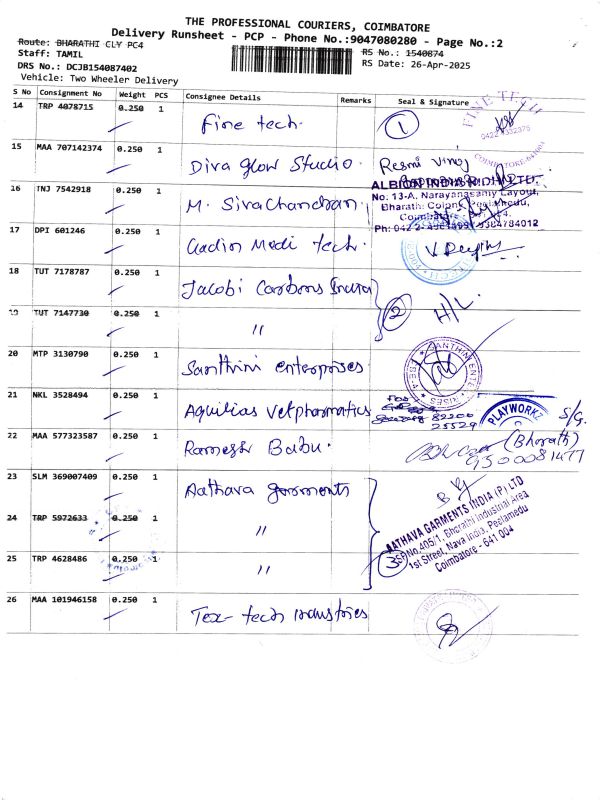 THE PROFESSIONAL COURIERS, COIMBATORE
Delivery Runsheet - PCP - Phone No.:9047080280 - Page No.:2
Route: BHARATHI CLY PC4
RS No.: 1540874
Staff: TAMIL
RS Date: 26-Apr-2025
DRS No.: DCJB154087402
Vehicle: Two Wheeler Delivery
S No Consignment No Weight PCS Consignee Details Remarks Seal & Signature
14 TRP 4078715 0.250 1 Fine tech. 1
FINE TECH
0422 2332375
COIMBATORE-641004
15 MAA 707142374 0.250 1 Diva Glow Studio. Resmi Vinoj
16 TNJ 7542918 0.250 1 M. Sivachandran.
ALBION INDIA RIDHI LTD.
No: 13-A, Narayanasamy Layout,
Bharathi Colony, Peelamedu,
Coimbatore
9384784012
17 DPI 601246 0.250 1 Medi tech.
18 TUT 7178787 0.250 1 Jacobi Carbons India
19 TUT 7147730 0.250 1 "
2 H/L.
20 MTP 3130790 0.250 1 Santhini enterprises.
21 NKL 3528494 0.250 1 Aquilias vetpharmatics
82200
25529
PLAYWORKZ
S/G.
22 MAA 577323587 0.250 1 Ramesh Babu.
(Bharath)
9500081477
23 SLM 369007409 0.250 1 Aathava garments
24 TRP 5972633 0.250 1 "
25 TRP 4628486 0.250 1 "
3
AATHAVA GARMENTS INDIA (P) LTD
SF No.405/1, Bharathi Industrial Area
1st Street, Nava India, Peelamedu
Coimbatore - 641 004
26 MAA 101946158 0.250 1 Tex-tech industries